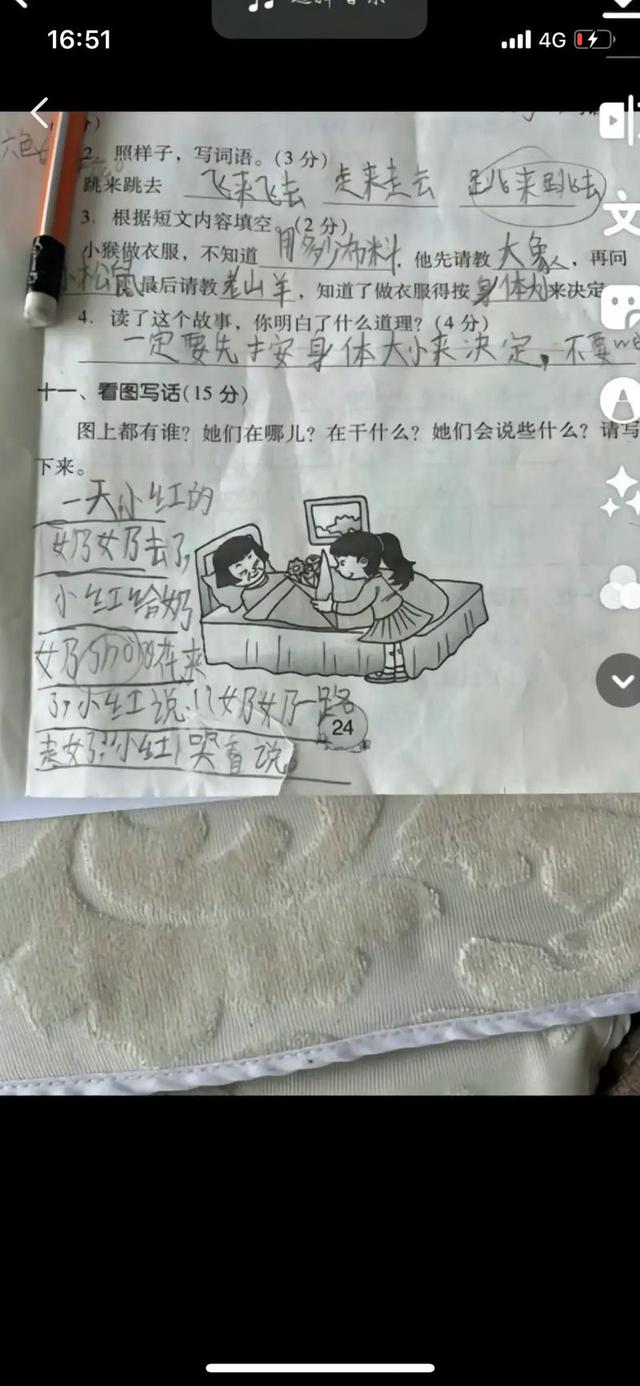 16:51
4G
2. 照样子，写词语。(3分)
跳来跳去 飞来飞去 走来走去 跳来跳去
3. 根据短文内容填空。(2分)
小猴做衣服，不知道 用多少布料，他先请教 大象，再问
小松鼠 最后请教 老山羊，知道了做衣服得按 身体 来决定
4. 读了这个故事，你明白了什么道理？(4分)
一定要先按身体大小来决定，不要
十一、看图写话(15分)
图上都有谁？她们在哪儿？在干什么？她们会说些什么？请写
下来。
一天小红的
奶奶去了，
小红给奶
奶 花来
了，小红说：“奶奶一路
走好”小红哭着说。
24